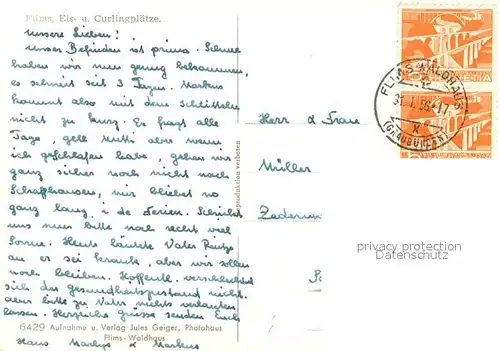 Flims, Eis- u. Curlingplätze.
Unsere Lieben!
Unser Befinden ist prima. Schnee
haben wir nun genug bekommen,
es schneit seit 3 Tagen. Markus
kommt also mit dem Schlitteln
nicht zu kurz. Es fragt alle
Tage, gell Mutti aber wenn
ich geschlafen habe, gehen wir
ganz sicher noch nicht nach
Schaffhausen, mir bliebet no
ganz lang i de Ferien. Schickt
uns nun bitte noch recht viel
Sonne. Heute läutete Vater
an er sei krank, aber wir sollen
noch bleiben. Hoffentl. verschlechtert
sich der Gesundheitszustand nicht.
aber bitte zu Vater nichts verlauten
lassen. Herzliche Grüsse senden Euch
6429 Aufnahme u. Verlag Jules Geiger, Photohaus
Flims-Waldhaus
Hans Marlys & Markus
produktion verboten
HELVETIA
5
FLIMS-WALDHAUS
31.I.56-17
X
(GRAUBÜNDEN)
5
Herr & Frau
Müller
privatsammlung
Datenschutz